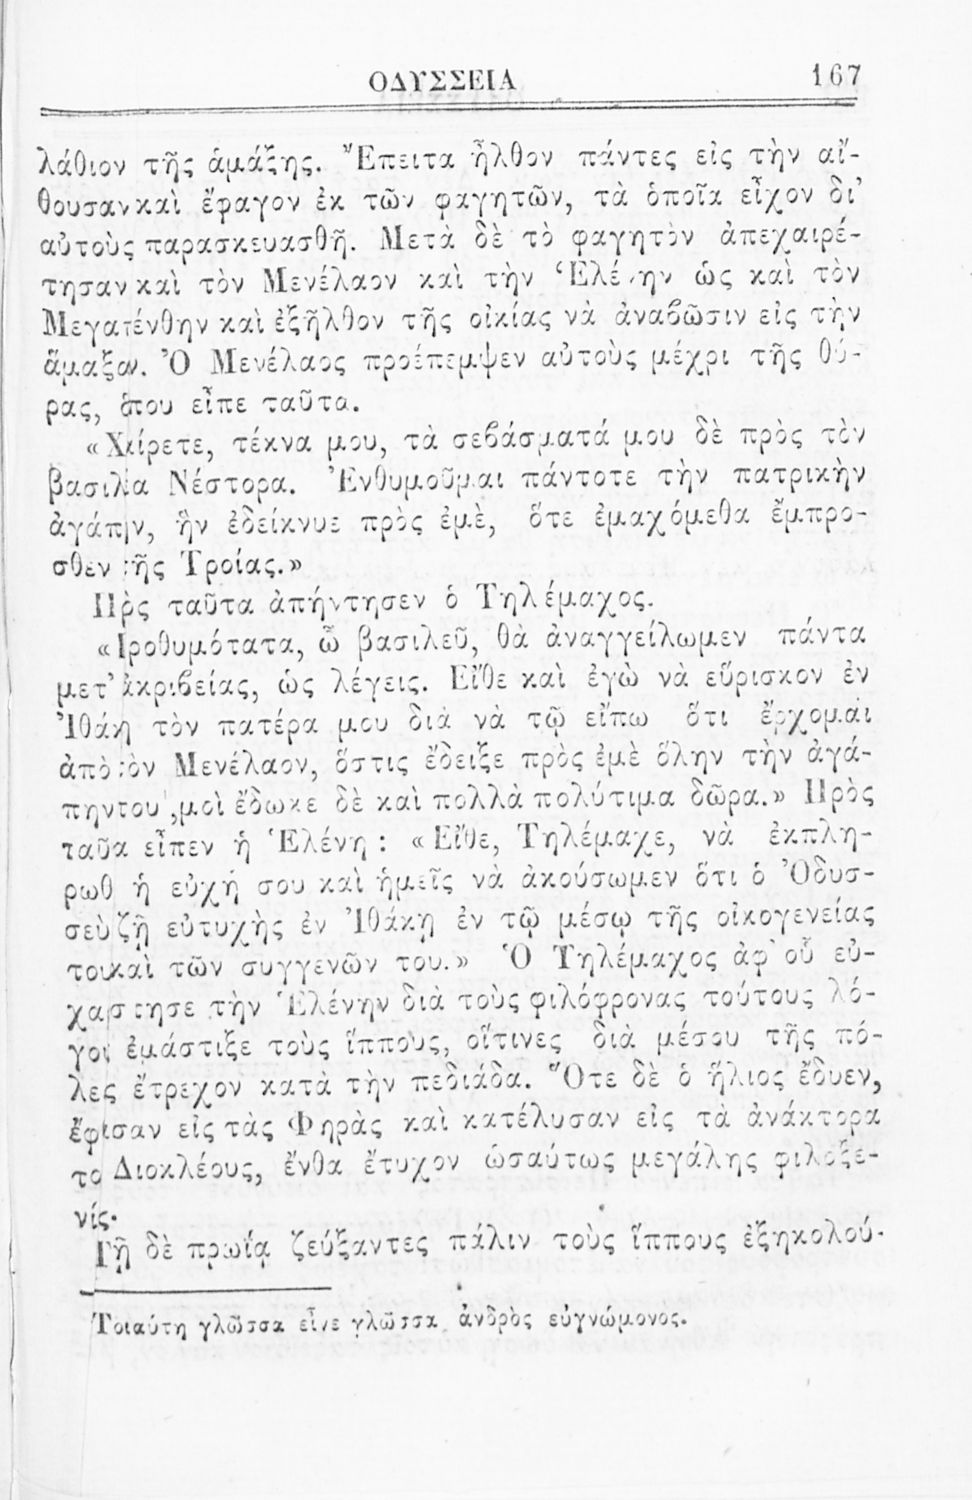 ΟΔΥΣΣΕΙΑ 167
λάθιον τῆς ἁμάξης. Ἔπειτα ἦλθον πάντες εἰς τὴν αἴ-
θουσαν καὶ ἔφαγον ἐκ τῶν φαγητῶν, τὰ ὁποῖα εἶχον δι'
αὐτοὺς παρασκευασθῆ. Μετὰ δὲ τὸ φαγητὸν ἀπεχαιρέ-
τησαν καὶ τὸν Μενέλαον καὶ τὴν Ἑλένην ὡς καὶ τὸν
Μεγαπένθην καὶ ἐξῆλθον τῆς οἰκίας νὰ ἀναβῶσιν εἰς τὴν
ἅμαξαν. Ὁ Μενέλαος προέπεμψεν αὐτοὺς μέχρι τῆς θύ-
ρας, ὅπου εἶπε ταῦτα.
«Χαίρετε, τέκνα μου, τὰ σεβάσματά μου δὲ πρὸς τὸν
βασιλέα Νέστορα. Ἐνθυμοῦμαι πάντοτε τὴν πατρικὴν
ἀγάπην, ἣν ἐδείκνυε πρὸς ἐμὲ, ὅτε ἐμαχόμεθα ἔμπρο-
σθεν τῆς Τροίας.»
Πρὸς ταῦτα ἀπήντησεν ὁ Τηλέμαχος.
«Προθυμότατα, ὦ βασιλεῦ, θὰ ἀναγγείλωμεν πάντα
μετ' ἀκριβείας, ὡς λέγεις. Εἴθε καὶ ἐγὼ νὰ εὕρισκον ἐν
Ἰθάκῃ τὸν πατέρα μου διὰ νὰ τῷ εἴπω ὅτι ἔρχομαι
ἀπὸ τὸν Μενέλαον, ὅστις ἔδειξε πρὸς ἐμὲ ὅλην τὴν ἀγά-
πην του, μοὶ ἔδωκε δὲ καὶ πολλὰ πολύτιμα δῶρα.» Πρὸς
ταῦτα εἶπεν ἡ Ἑλένη : «Εἴθε, Τηλέμαχε, νὰ ἐκπλη-
ρωθῇ ἡ εὐχή σου καὶ ἡμεῖς νὰ ἀκούσωμεν ὅτι ὁ Ὀδυσ-
σεὺς ζῇ εὐτυχὴς ἐν Ἰθάκῃ ἐν τῷ μέσῳ τῆς οἰκογενείας
του καὶ τῶν συγγενῶν του.» Ὁ Τηλέμαχος ἀφ' οὗ εὐ-
χαρίστησε τὴν Ἑλένην διὰ τοὺς φιλόφρονας τούτους λό-
γους ἐμάστιξε τοὺς ἵππους, οἵτινες διὰ μέσου τῆς πό-
λεως ἔτρεχον κατὰ τὴν πεδιάδα. Ὅτε δὲ ὁ ἥλιος ἔδυεν,
ἔφθασαν εἰς τὰς Φηρὰς καὶ κατέλυσαν εἰς τὰ ἀνάκτορα
τοῦ Διοκλέους, ἔνθα ἔτυχον ὡσαύτως μεγάλης φιλοξε-
νίας.
Τῇ δὲ πρωΐᾳ ζεύξαντες πάλιν τοὺς ἵππους ἐξηκολού-
Τοιαύτη γλῶσσα εἶνε γλῶσσα ἀνδρὸς εὐγνώμονος.